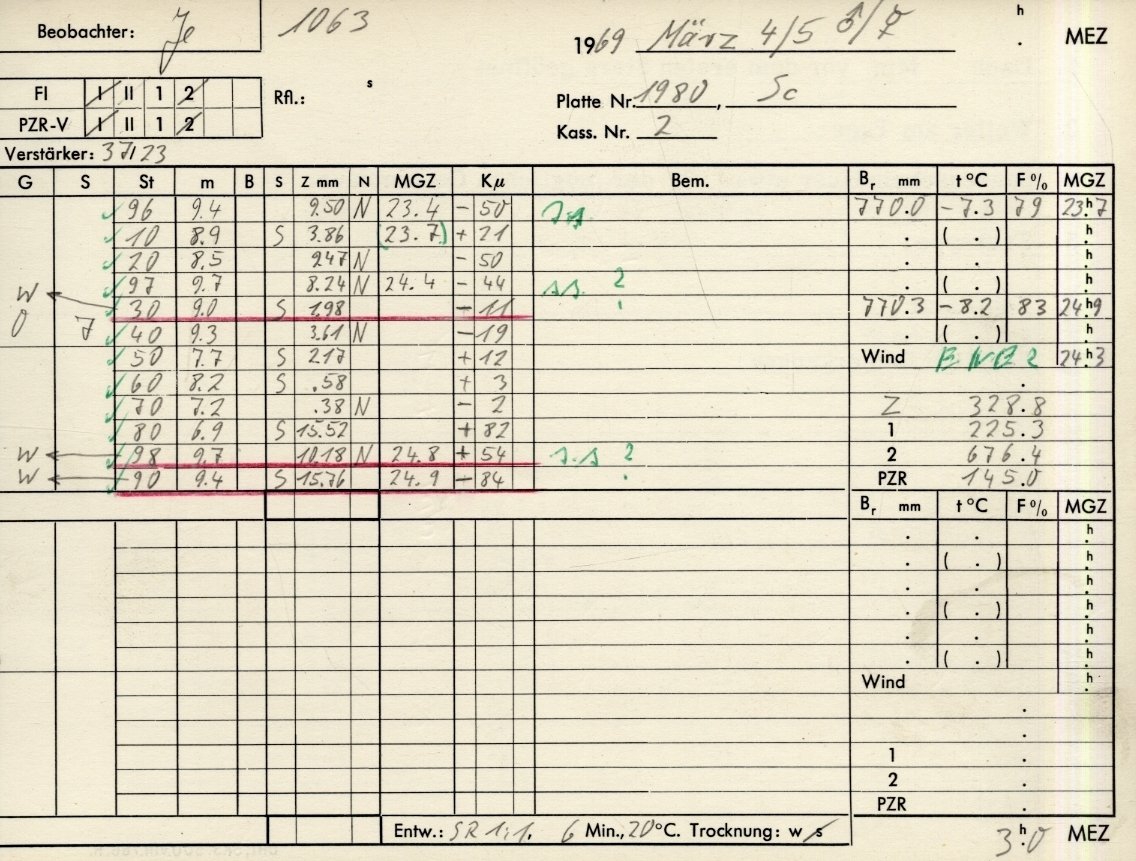 Beobachter: Je 1063 h
1969 März 4/5 ♂/☿ . MEZ
FI I II 1 2 Rfl.: s
Platte Nr. 1980, Sc
PZR-V I II 1 2
Kass. Nr. 2
Verstärker: 37/23
G S St m B S Z mm N MGZ Kμ Bem. Br mm t °C F % MGZ
96 9.4 9.50 N 23.4 - 50 s.s. 770.0 -7.3 79 23h.7
10 8.9 S 3.86 (23.7) + 21 . ( . ) h.
20 8.5 2.47 N - 50 . . h.
97 9.7 8.24 N 24.4 - 44 s.s. ? . ( . ) h.
W 30 9.0 S 1.98 - 11 770.3 -8.2 83 24h.9
0 7 40 9.3 3.61 N - 19 . ( . ) h.
50 7.7 S 2.17 + 12 Wind ENE 2 24h.3
60 8.2 S .58 + 3 .
70 7.2 .38 N - 2 Z 328.8
80 6.9 S 15.52 + 82 1 225.3
W 98 9.7 10.18 N 24.8 + 54 s.s ? 2 676.4
W 90 9.4 S 15.76 24.9 - 84 PZR 145.0
Br mm t °C F % MGZ
. . h.
. ( . ) h.
. . h.
. ( . ) h.
. . h.
. ( . ) h.
Wind h.
.
.
1 .
2 .
PZR .
Entw.: SR 1:1, 6 Min., 20 °C. Trocknung: w s 3h.0 MEZ